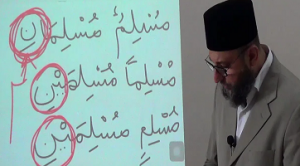 مُسْلِمٌ مُسْلِمَانِ
مُسْلِمًا مُسْلِمَيْنِ
مُسْلِمٍ مُسْلِمَيْنِ